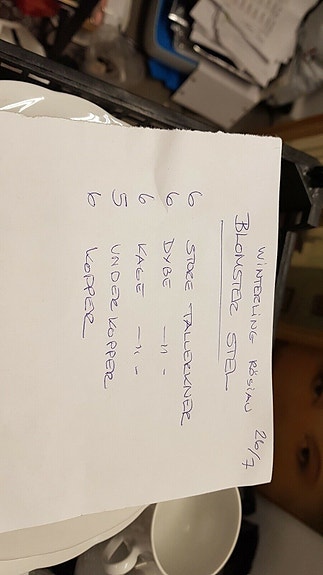 WINTERLING RÖSLAU 26/7
BLOMSTER STEL
6 STORE TALLERKNER
6 DYBE -11-
6 KAGE -11-
5 UNDERKOPPER
6 KOPPER